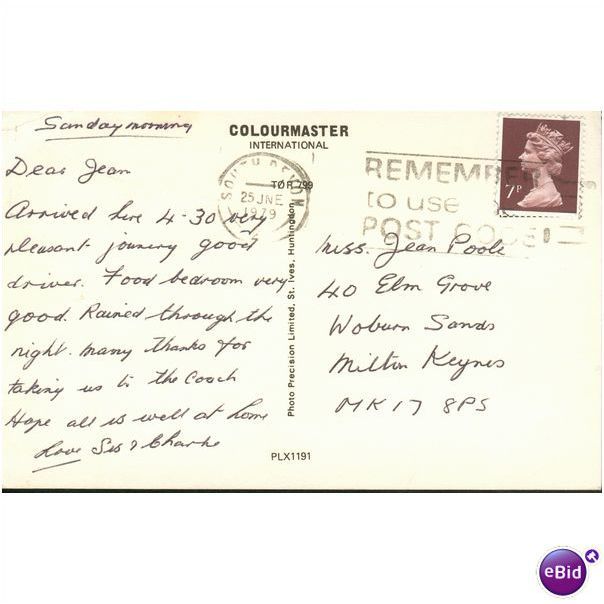 Sanday morning
COLOURMASTER
INTERNATIONAL
Dear Jean
Arrived here 4-30 very
pleasant journery good
driver. Food bedroom very
good. Rained through the
night. many thanks for
taking us to the coach
Hope all is well at home
Love Sis & Charlie
SOUTH DEVON
TOR 799
25 JNE
1979
REMEMBER
to use
POST CODE
7P
Miss. Jean Poole
40 Elm Grove
Woburn Sands
Milton Keynes
MK17 8PS
Photo Precision Limited, St. Ives, Huntingdon
PLX1191
eBid